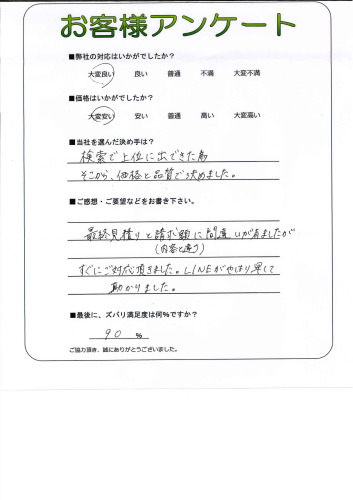 お客様アンケート
■弊社の対応はいかがでしたか？
大変良い 良い 普通 不満 大変不満
■価格はいかがでしたか？
大変安い 安い 普通 高い 大変高い
■当社を選んだ決め手は？
検索で上位に出てきた為
そこから、価格と品質で決めました。
■ご感想・ご要望などをお書き下さい。
最終見積りと請求額に間違いがありましたが
(内容と違う)
すぐにご対応頂きました。LINEがやはり早くて
助かりました。
■最後に、ズバリ満足度は何%ですか？
90 %
ご協力頂き、誠にありがとうございました。